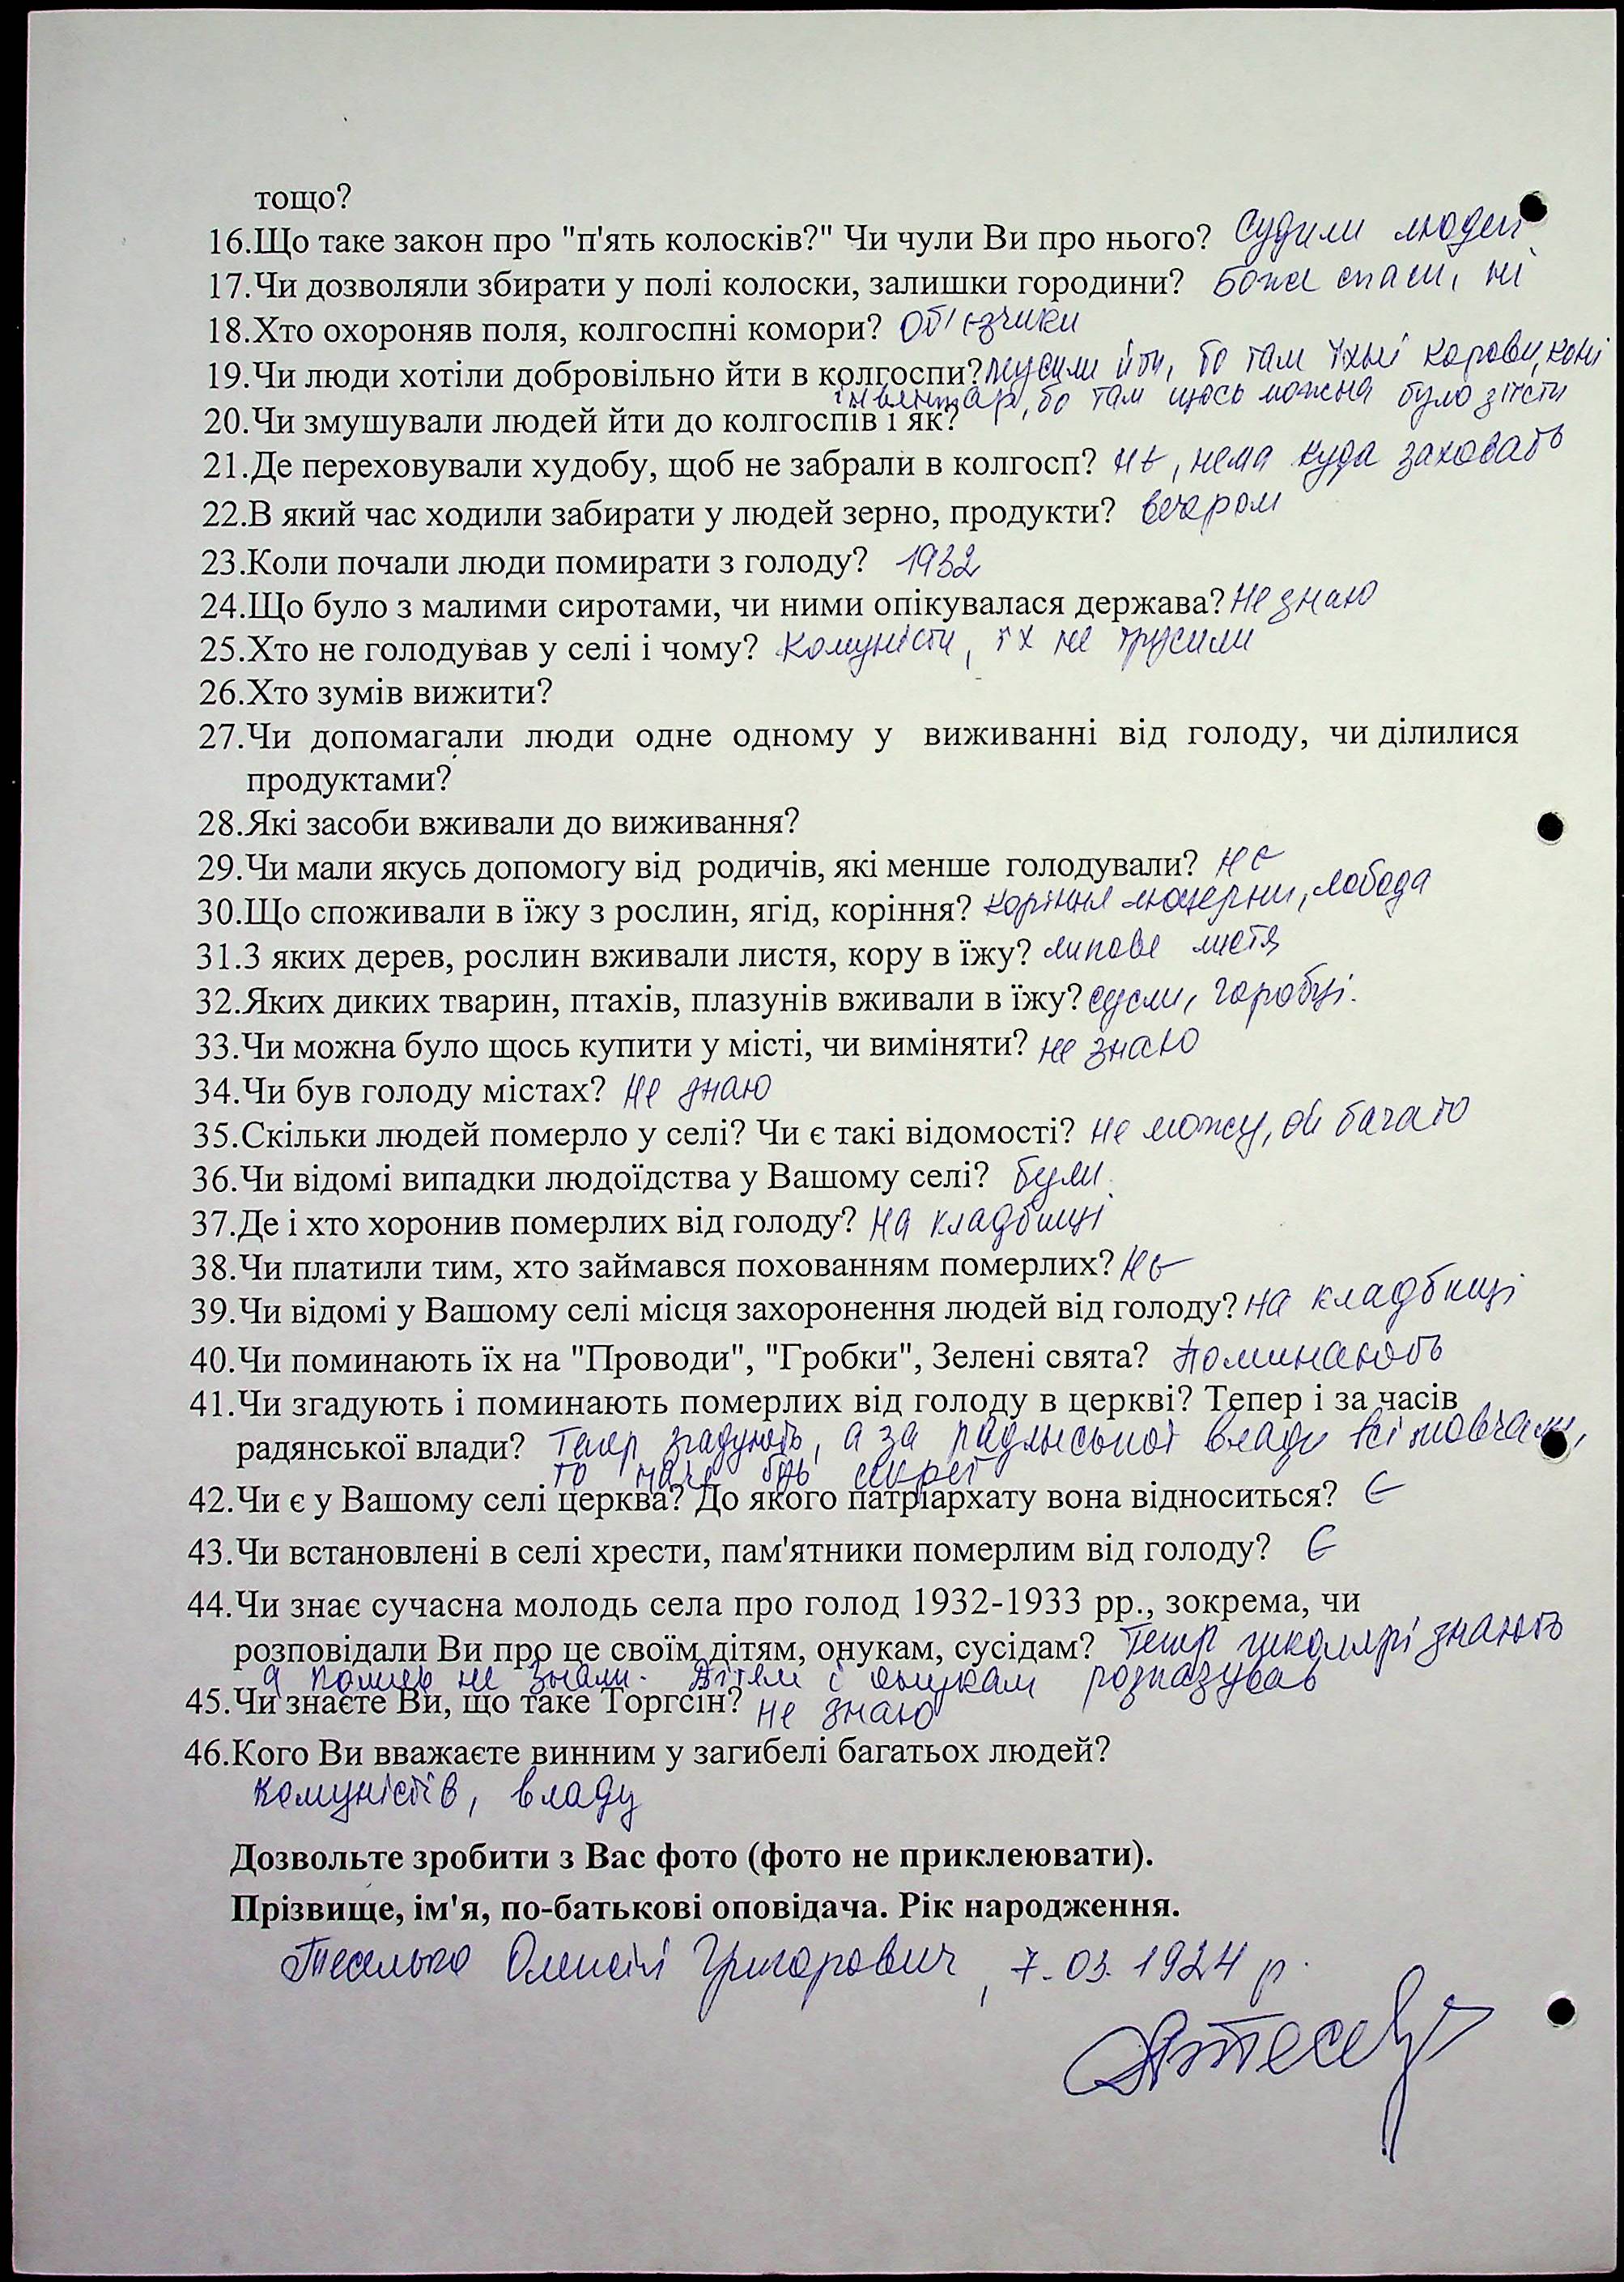 тощо?
16.Що таке закон про "п'ять колосків?" Чи чули Ви про нього? Судили людей
17.Чи дозволяли збирати у полі колоски, залишки городини? Боже спаси, ні
18.Хто охороняв поля, колгоспні комори? Об'єзчики
19.Чи люди хотіли добровільно йти в колгоспи? мусили йти, бо там їхні корови, коні
інвентар, бо там щось можна було зїсти
20.Чи змушували людей йти до колгоспів і як?
21.Де переховували худобу, щоб не забрали в колгосп? нє, нема куда заховать
22.В який час ходили забирати у людей зерно, продукти? вечером
23.Коли почали люди помирати з голоду? 1932
24.Що було з малими сиротами, чи ними опікувалася держава? Не знаю
25.Хто не голодував у селі і чому? Комуністи, їх не трусили
26.Хто зумів вижити?
27.Чи допомагали люди одне одному у виживанні від голоду, чи ділилися
продуктами?
28.Які засоби вживали до виживання?
29.Чи мали якусь допомогу від родичів, які менше голодували? нє
30.Що споживали в їжу з рослин, ягід, коріння? коріння люцерни, лобода
31.З яких дерев, рослин вживали листя, кору в їжу? липове листя
32.Яких диких тварин, птахів, плазунів вживали в їжу? сусли, горобці.
33.Чи можна було щось купити у місті, чи виміняти? не знаю
34.Чи був голоду містах? Не знаю
35.Скільки людей померло у селі? Чи є такі відомості? не можу, ой багато
36.Чи відомі випадки людоїдства у Вашому селі? були.
37.Де і хто хоронив померлих від голоду? На кладбищі
38.Чи платили тим, хто займався похованням померлих? Нє
39.Чи відомі у Вашому селі місця захоронення людей від голоду? на кладбищі
40.Чи поминають їх на "Проводи", "Гробки", Зелені свята? Поминають
41.Чи згадують і поминають померлих від голоду в церкві? Тепер і за часів
радянської влади? Тепер згадують, а за радянської влади всі мовчали,
то наче був секрет
42.Чи є у Вашому селі церква? До якого патріархату вона відноситься? Є
43.Чи встановлені в селі хрести, пам'ятники померлим від голоду? Є
44.Чи знає сучасна молодь села про голод 1932-1933 рр., зокрема, чи
розповідали Ви про це своїм дітям, онукам, сусідам? Тепер школярі знають
а не знали. Дітям і онукам розказував
45.Чи знаєте Ви, що таке Торгсін? не знаю
46.Кого Ви вважаєте винним у загибелі багатьох людей?
комуністів, владу
Дозвольте зробити з Вас фото (фото не приклеювати).
Прізвище, ім'я, по-батькові оповідача. Рік народження.
Олексій Григорович, 7.03.1924 р.